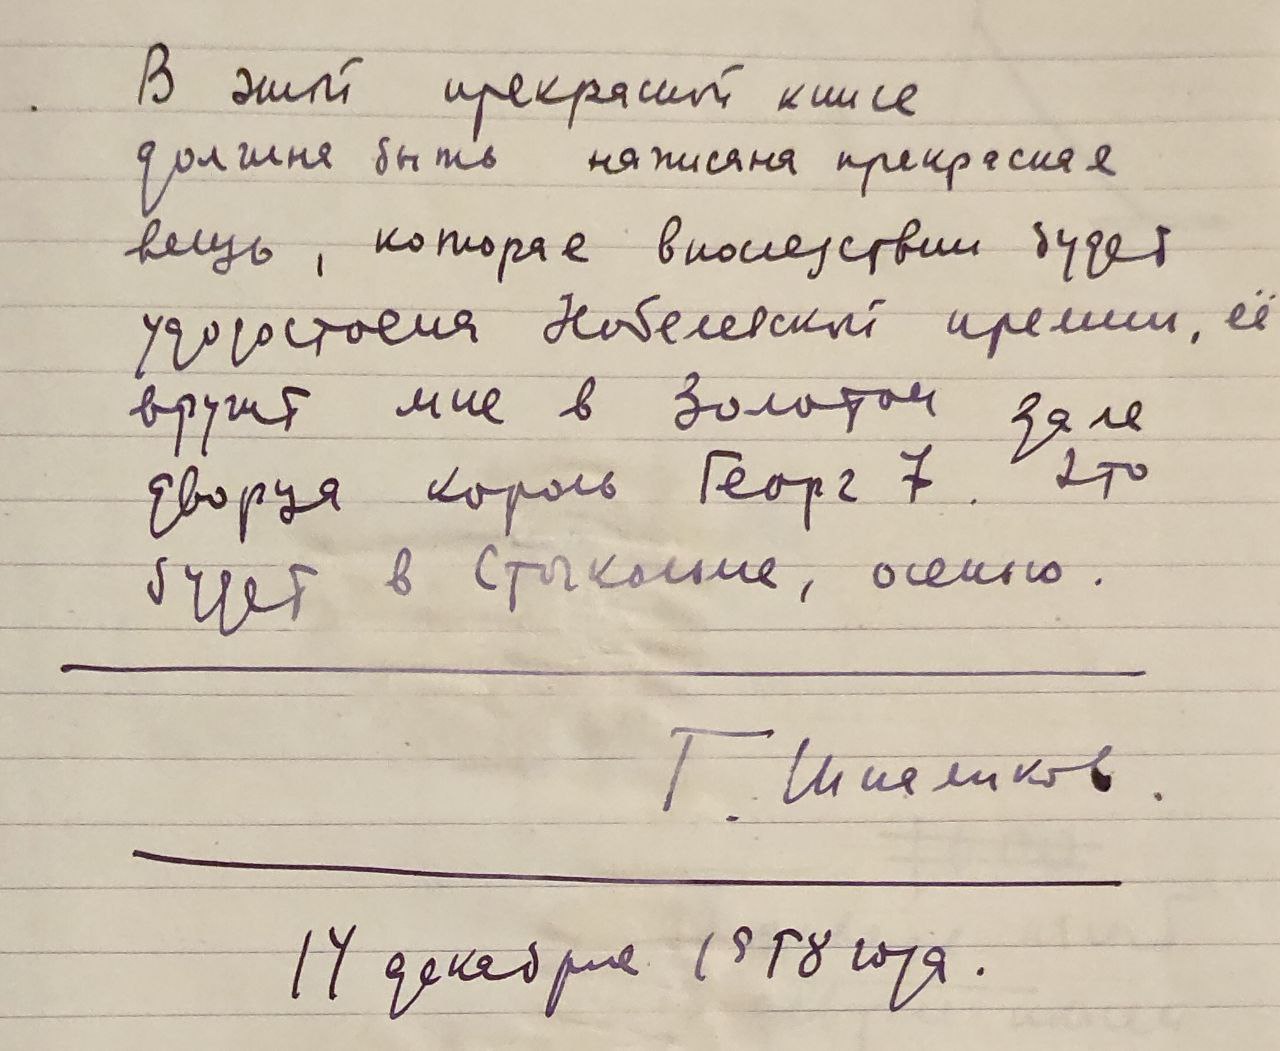 В этой прекрасной книге
должна быть написана прекрасная
вещь, которая впоследствии будет
удодостоена Нобелевской премии, её
вручит мне в Золотом зале
дворца король Георг 7. Это
будет в Стокгольме, осенью.
Г. Шпаликов.
14 декабря 1958 года.